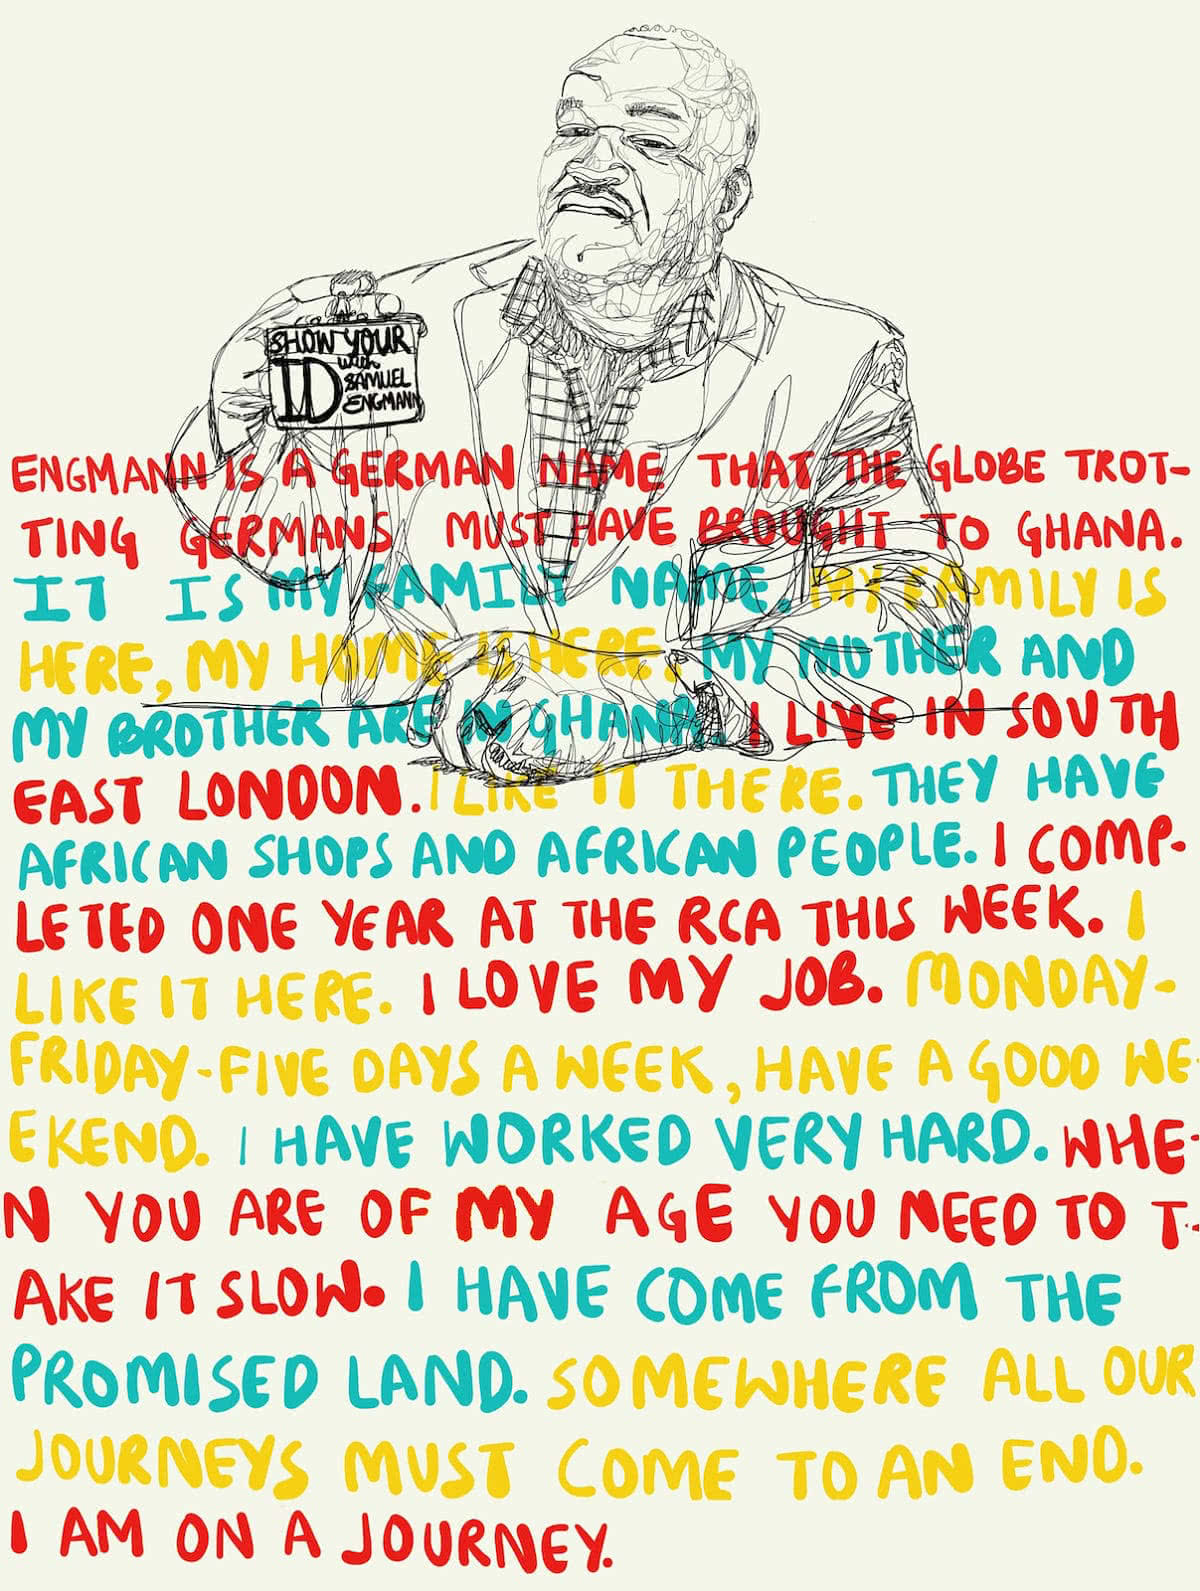 SHOW YOUR
ID with
SAMUEL
ENGMANN
ENGMANN IS A GERMAN NAME THAT THE GLOBE TROT-
TING GERMANS MUST HAVE BROUGHT TO GHANA.
IT IS MY FAMILY NAME. MY FAMILY IS
HERE, MY HOME IS HERE. MY MOTHER AND
MY BROTHER ARE IN GHANA. I LIVE IN SOUTH
EAST LONDON. I LIKE IT THERE. THEY HAVE
AFRICAN SHOPS AND AFRICAN PEOPLE. I COMP-
LETED ONE YEAR AT THE RCA THIS WEEK. I
LIKE IT HERE. I LOVE MY JOB. MONDAY-
FRIDAY-FIVE DAYS A WEEK, HAVE A GOOD WE-
EKEND. I HAVE WORKED VERY HARD. WHE-
N YOU ARE OF MY AGE YOU NEED TO T-
AKE IT SLOW. I HAVE COME FROM THE
PROMISED LAND. SOMEWHERE ALL OUR
JOURNEYS MUST COME TO AN END.
I AM ON A JOURNEY.